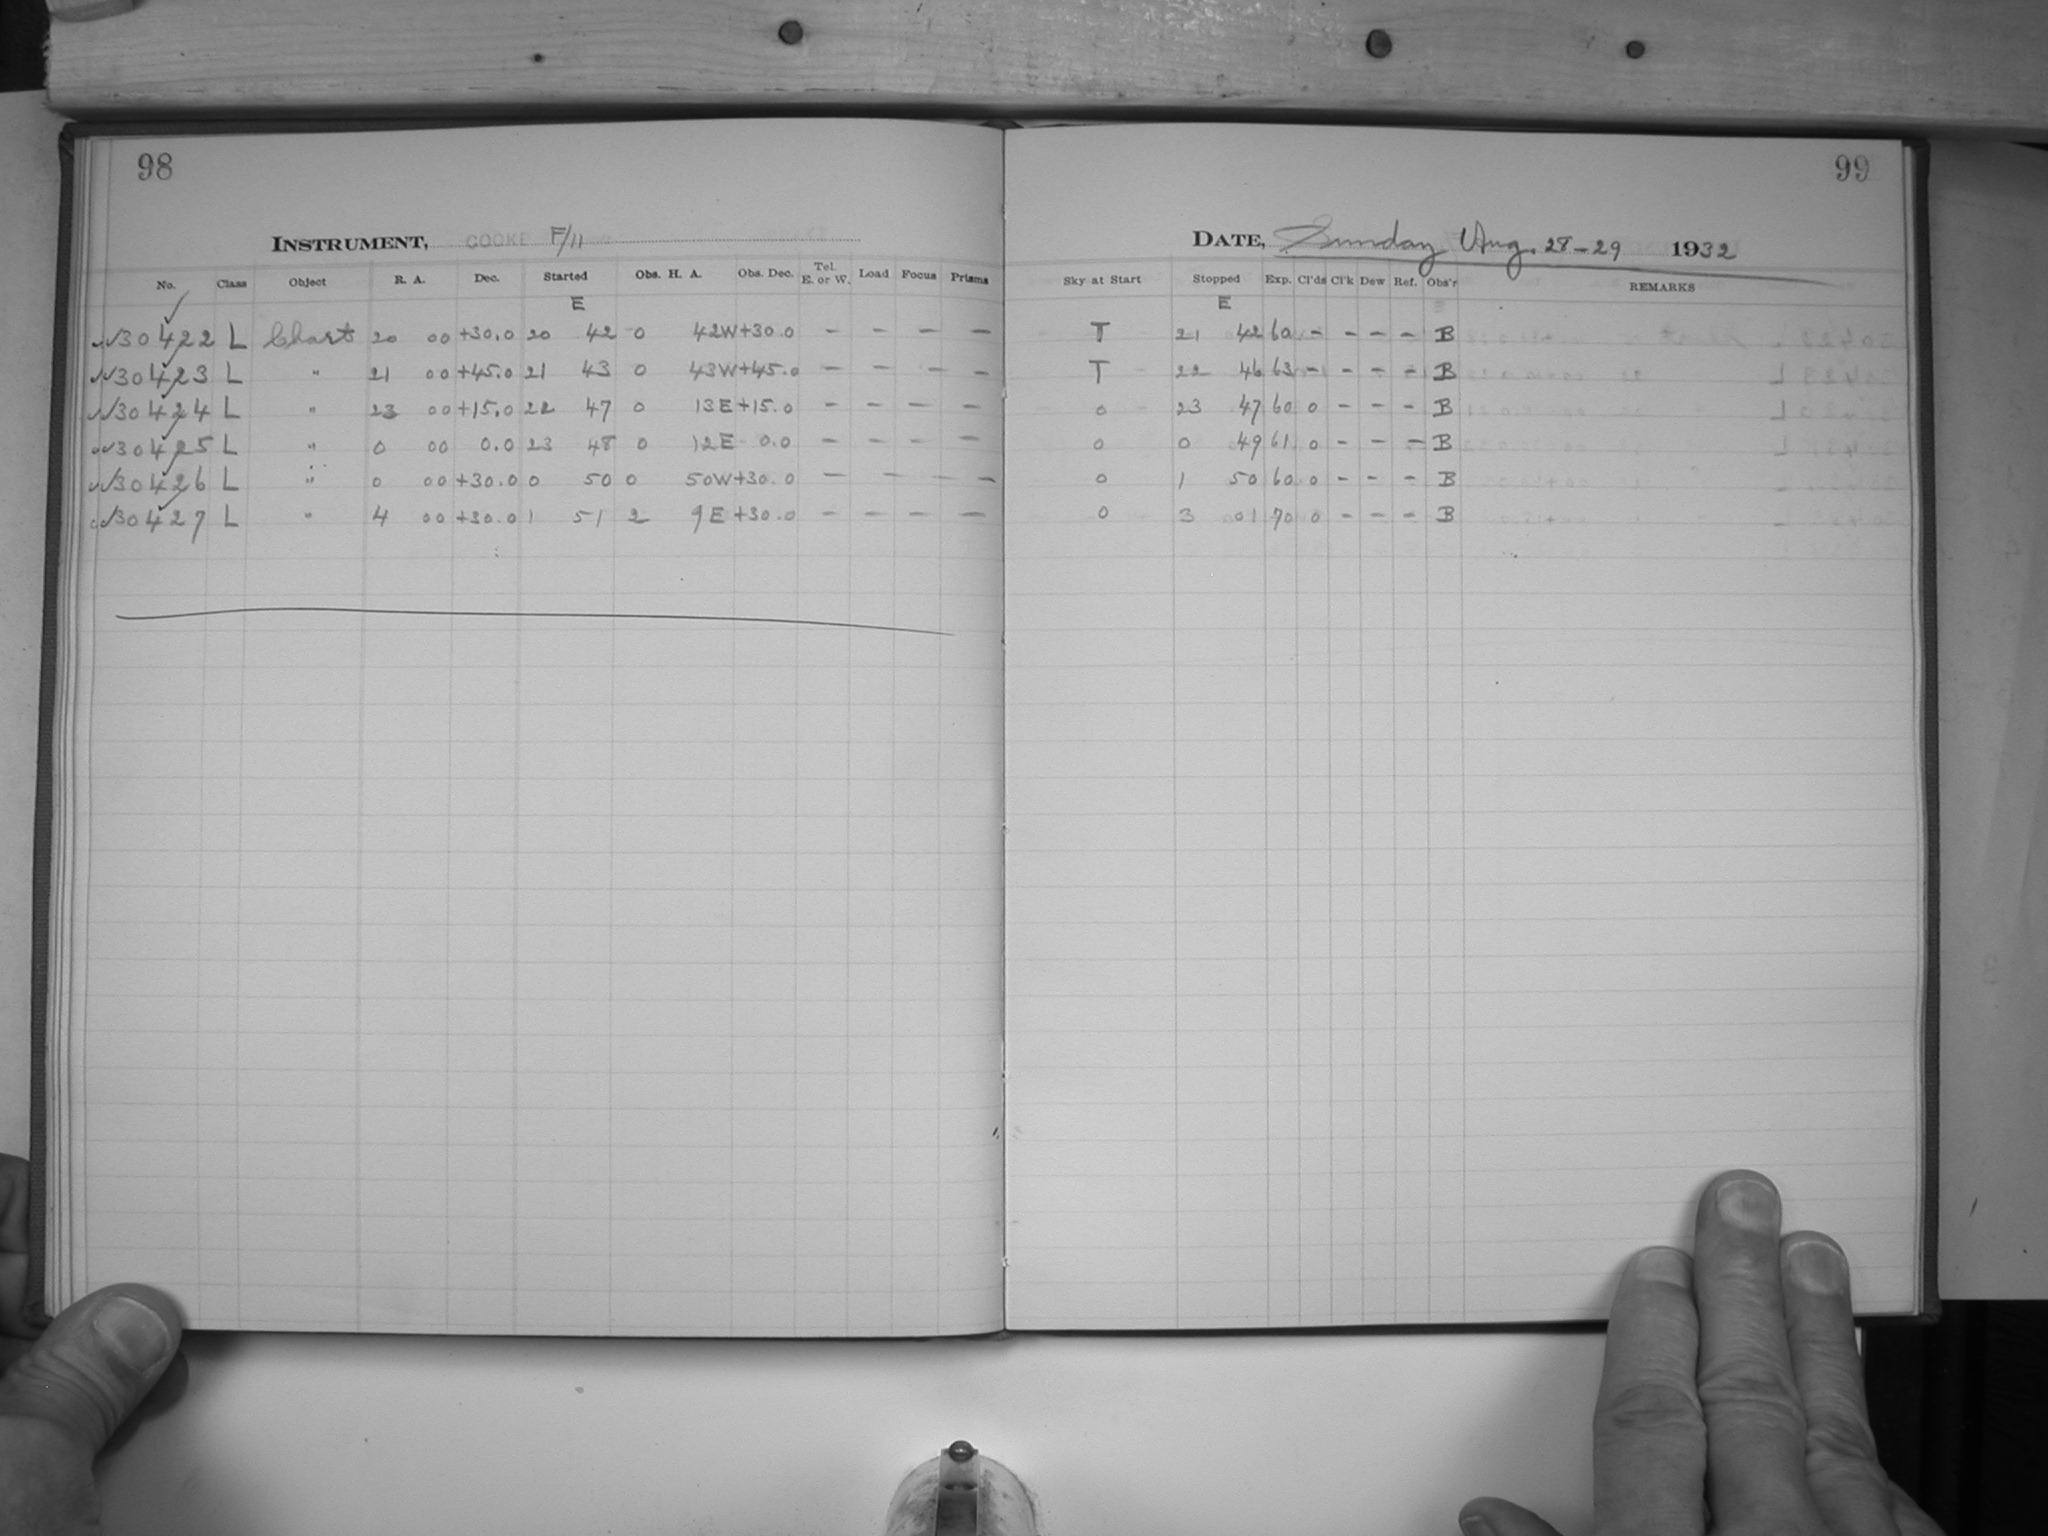 98
INSTRUMENT, COOKE F/11
No. Class Object R. A. Dec. Started Obs. H. A. Obs. Dec. Tel. E. or W. Load Focus Prisms
E
30422 L Chart 20 00 +30.0 20 42 0 42W +30.0 - - - -
30423 L " 21 00 +45.0 21 43 0 43W +45.0 - - - -
30424 L " 23 00 +15.0 22 47 0 13E +15.0 - - - -
30425 L " 0 00 0.0 23 48 0 12E 0.0 - - - -
30426 L " 0 00 +30.0 0 50 0 50W +30.0 - - - -
30427 L " 4 00 +30.0 1 51 2 9E +30.0 - - - -
99
DATE, Sunday Aug. 28-29 1932
Sky at Start Stopped Exp. Cl'ds Cl'k Dew Ref. Obs'r REMARKS
E
T 21 42 60 - - - - B
T 22 46 63 - - - - B
0 23 47 60 0 - - - B
0 0 49 61 0 - - - B
0 1 50 60 0 - - - B
0 3 01 70 0 - - - B